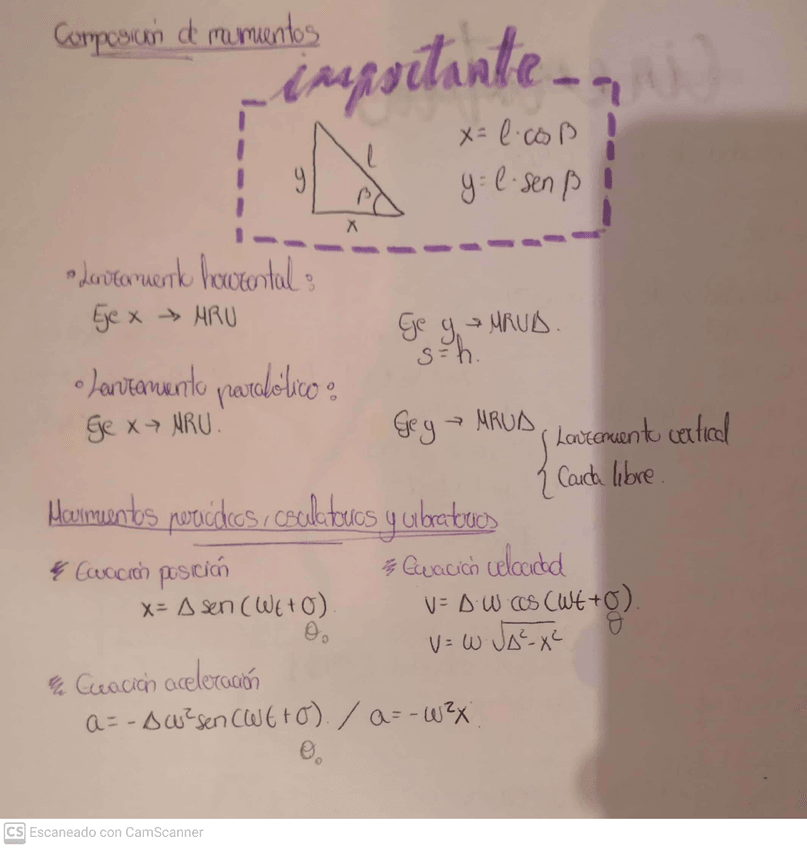 Composición de movimientos
importante
y l β x
x = l · cos β
y = l · sen β
• Lanzamiento horizontal:
Eje x → MRU
Eje y → MRUA.
s = h.
• Lanzamiento parabólico:
Eje x → MRU.
Eje y → MRUA { Lanzamiento vertical
Caída libre.
Movimientos periódicos, oscilatorios y vibratorios
Ecuación posición
x = A sen (ωt + σ)
θ₀
Ecuación velocidad
v = A · ω cos (ωt + σ).
θ
v = ω √A² - x²
Ecuación aceleración
a = - Aω² sen (ωt + σ). / a = - ω²x.
θ₀
CS Escaneado con CamScanner